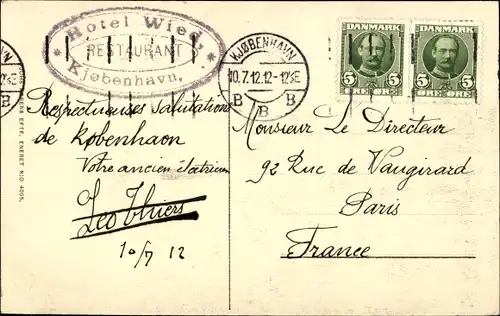 Hotel Wied.
RESTAURANT
Kjøbenhavn.
KJØBENHAVN
10.7.12.12-12½E
B B B
DANMARK
5 5
ØRE ØRE
DANMARK
5 5
ØRE ØRE
Respectueuses salutations
de København
Votre ancien
Leo Thiers
10/7 12
Monsieur Le Directeur
92 Rue de Vaugirard
Paris
France
EFTF. ENERET NO 4005.